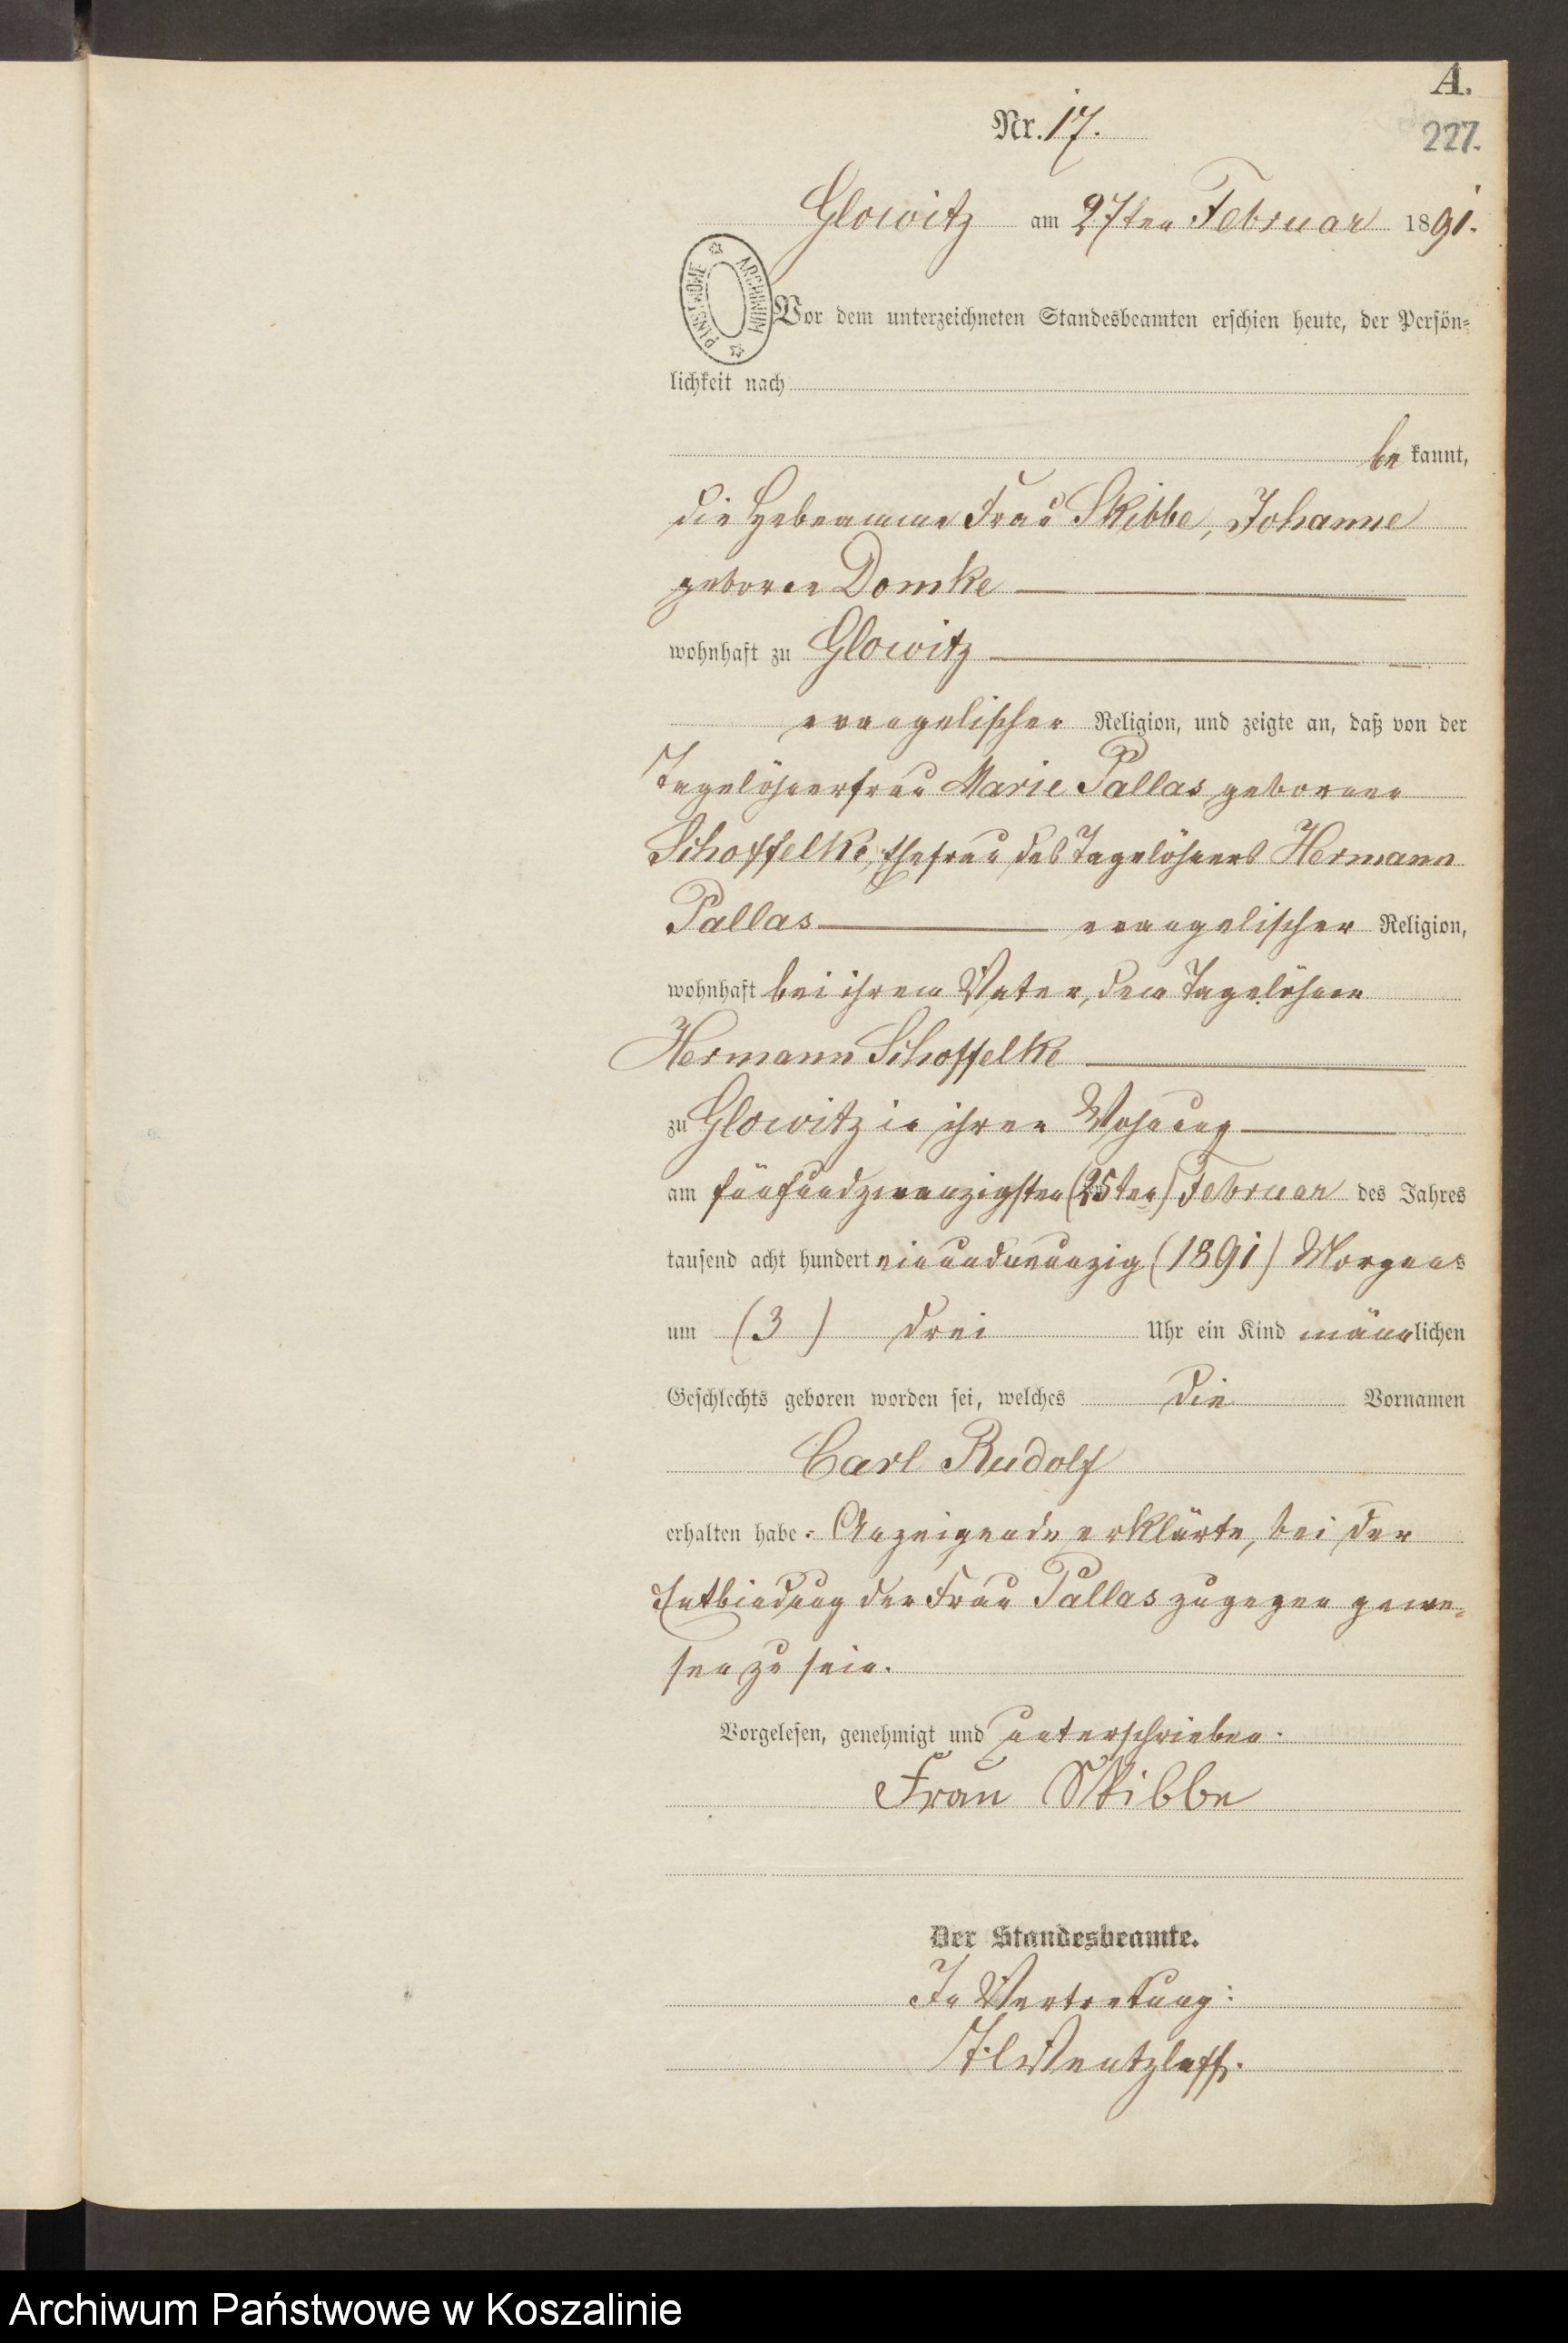 A.
Nr. 17.
227.
Glowitz am 27ten Februar 1891.
ARCHIWUM PAŃSTWOWE
Vor dem unterzeichneten Standesbeamten erschien heute, der Persön-
lichkeit nach
be kannt,
die Hebeamme Frau Skibbe, Johanne
geboren Domke
wohnhaft zu Glowitz
evangelischer Religion, und zeigte an, daß von der
Tagelöhnerfrau Marie Pallas geborner
Schoffelke, Ehefrau des Tagelöhners Hermann
Pallas evangelischer Religion,
wohnhaft bei ihrem Vater, dem Tagelöhner
Hermann Schoffelke
zu Glowitz in ihrer Wohnung
am fünfundzwanzigsten (25ten) Februar des Jahres
tausend acht hundert einundneunzig (1891) Morgens
um (3) drei Uhr ein Kind männlichen
Geschlechts geboren worden sei, welches die Vornamen
Carl Rudolf
erhalten habe. Anzeigende erklärte, bei der
Entbindung der Frau Pallas zugegen gewe-
sen zu sein.
Vorgelesen, genehmigt und unterschrieben.
Frau Skibbe
Der Standesbeamte.
In Vertretung:
Wentzlaff.
Archiwum Państwowe w Koszalinie